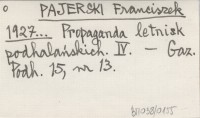 PAJERSKI Franciszek
1927... Propaganda letnisk
podhalańskich. IV. — Gaz.
Podh. 15, nr 13.